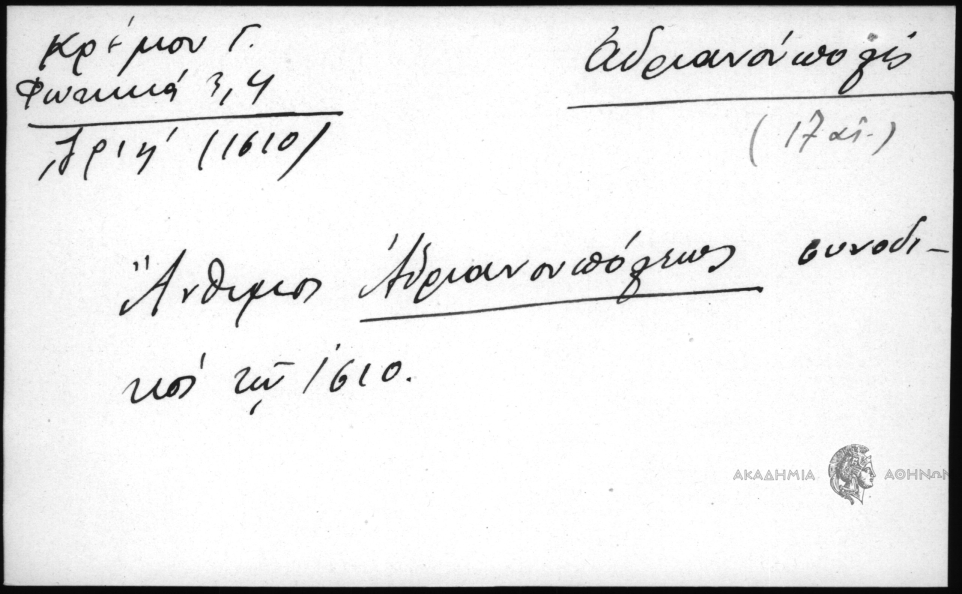 Κρέμου Γ.
Φωτικά 3, 4
(1610)
Ἀδριανούπολις
(17 αἰ.)
Ἄνθιμος Ἀδριανουπόλεως συνοδι-
κός τῷ 1610.
ΑΚΑΔΗΜΙΑ ΑΘΗΝΩΝ